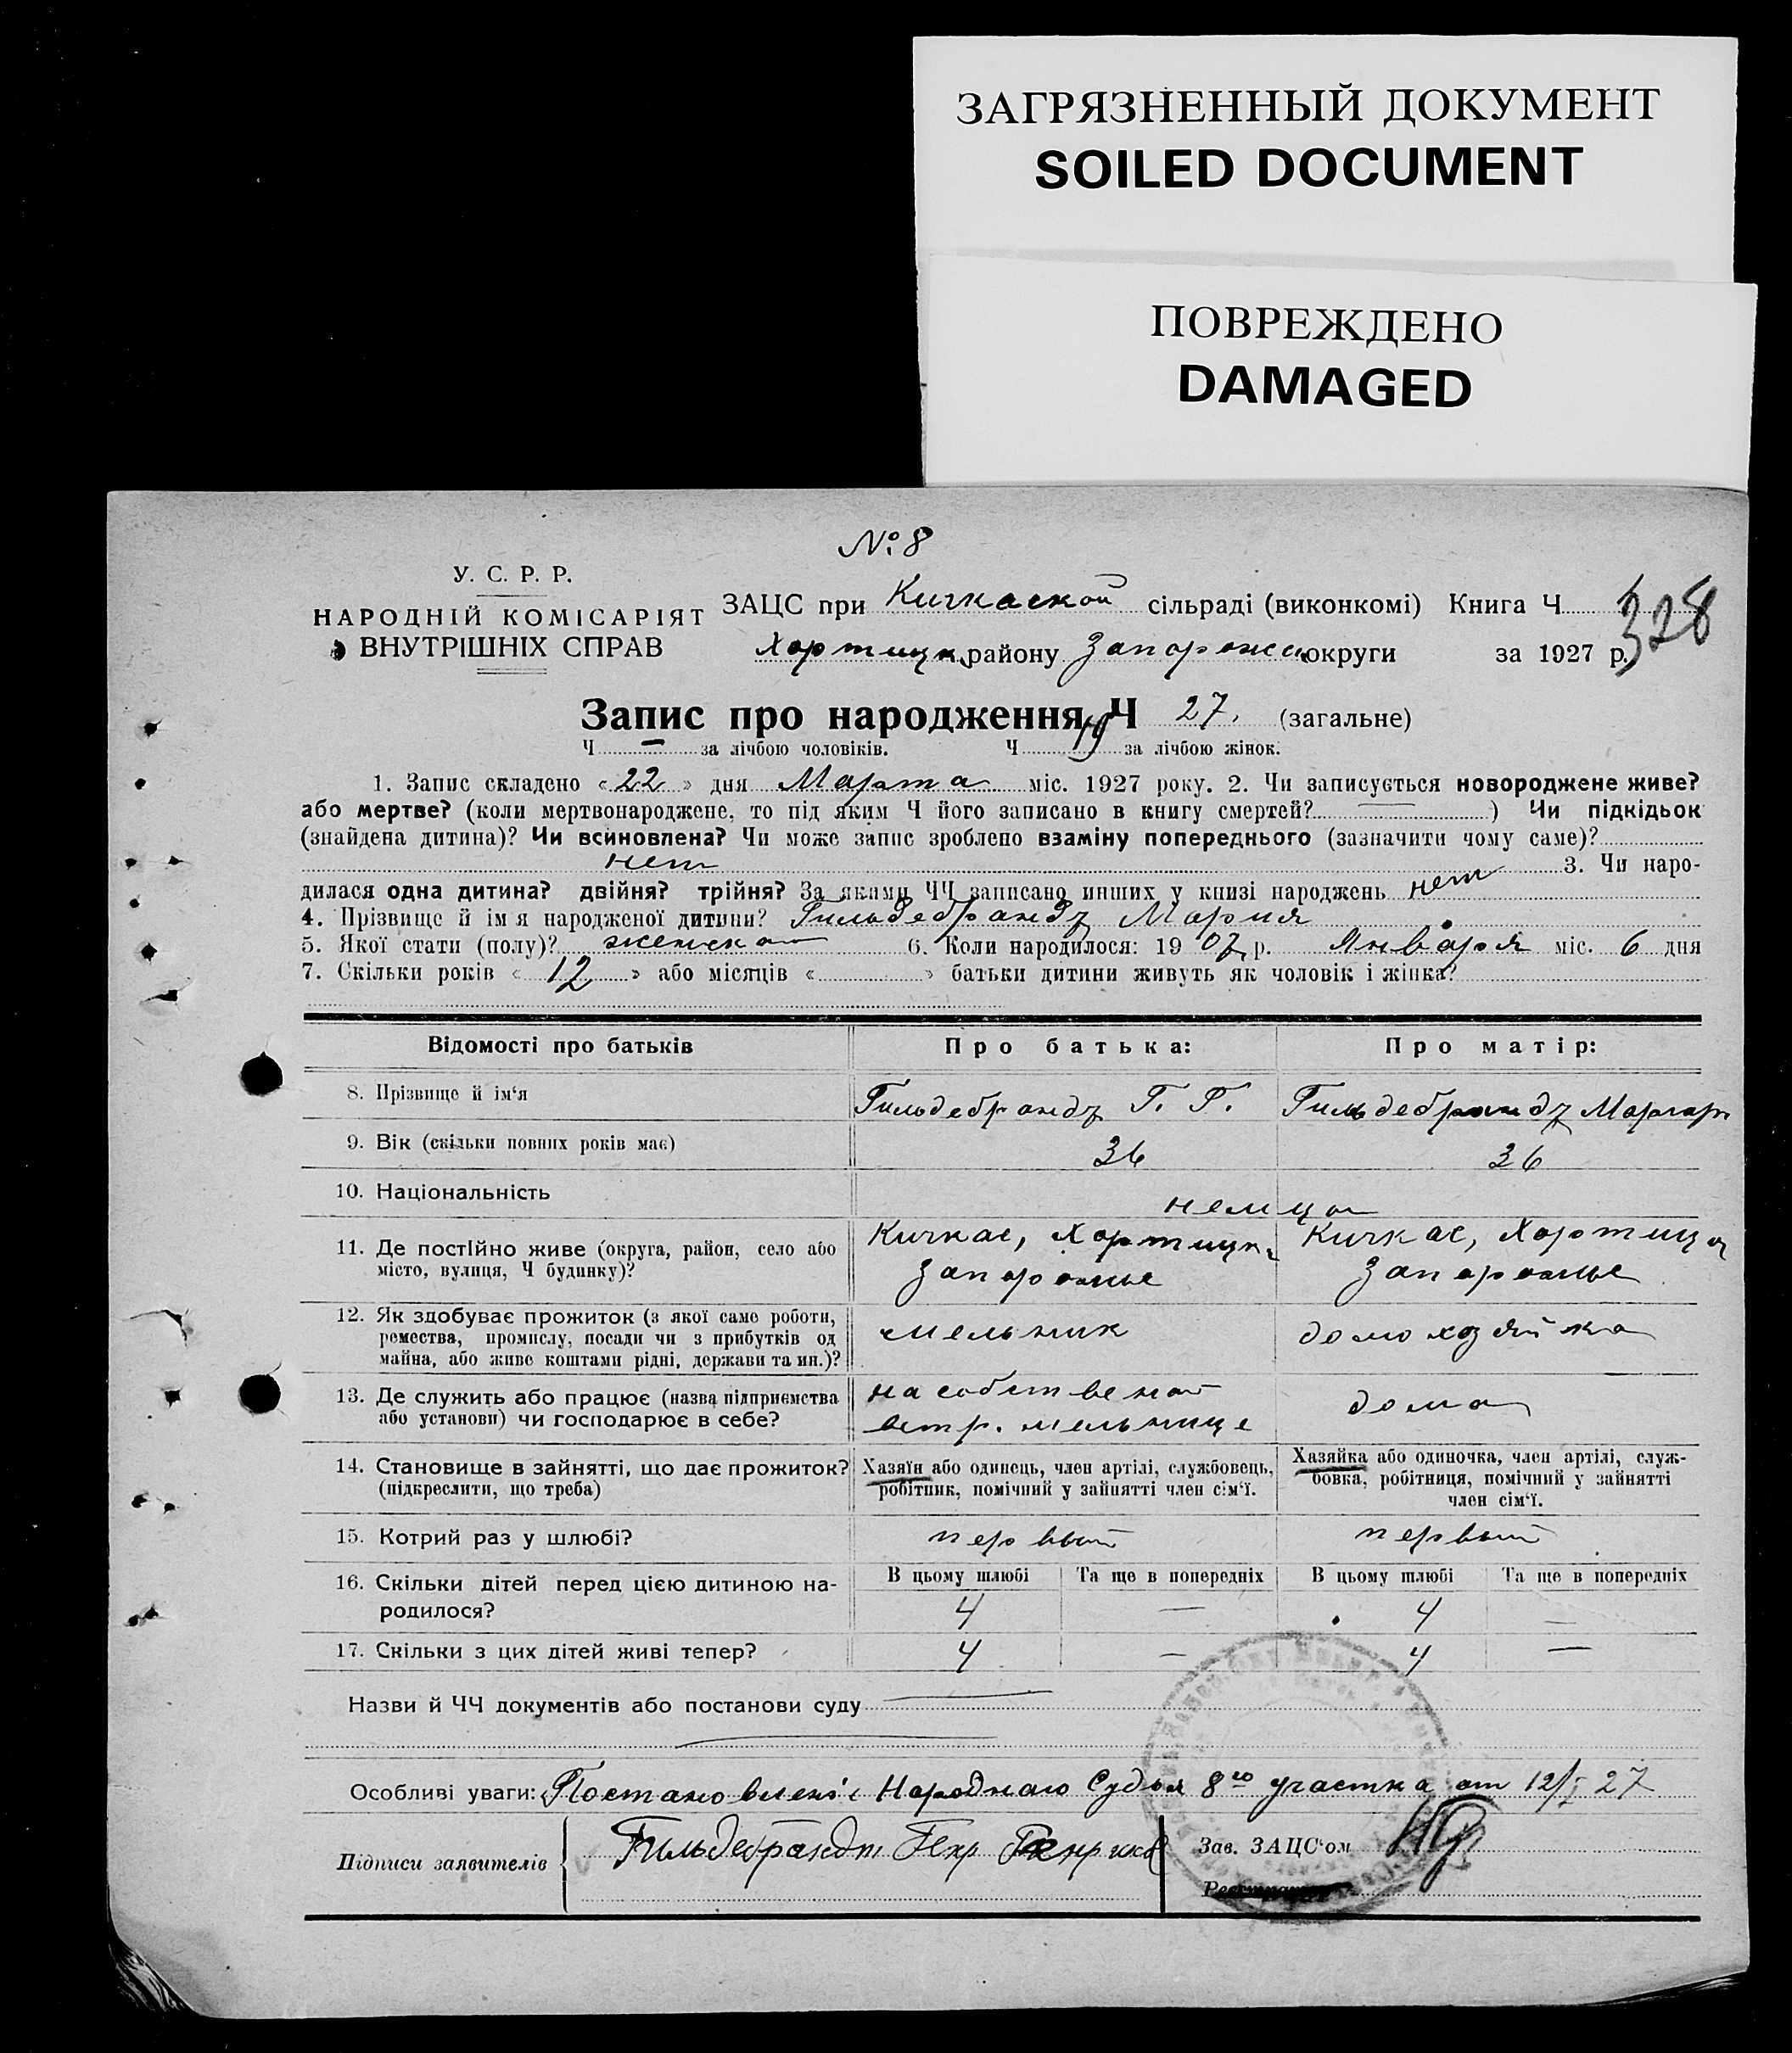 ЗАГРЯЗНЕННЫЙ ДОКУМЕНТ
SOILED DOCUMENT
ПОВРЕЖДЕНО
DAMAGED
№ 8
У. С. Р. Р.
НАРОДНІЙ КОМІСАРІЯТ
ВНУТРІШНІХ СПРАВ
ЗАЦС при Кичкаской сільраді (виконкомі) Книга Ч.
328
Хортицк. району Запорожск. округи за 1927 р.
Запис про народження Ч 27. (загальне)
Ч — за лічбою чоловіків. Ч 19 за лічбою жінок.
1. Запис складено «22» дня Марта міс. 1927 року. 2. Чи записується новороджене живе?
або мертве? (коли мертвонароджене, то під яким Ч його записано в книгу смертей? —) Чи підкідьок
(знайдена дитина)? Чи всиновлена? Чи може запис зроблено взаміну попереднього (зазначити чому саме)?
нет 3. Чи наро-
дилася одна дитина? двійня? трійня? За якими ЧЧ записано инших у книзі народжень нет
4. Прізвище й ім'я народженої дитини? Гильдебрандт Мария
5. Якої стати (полу)? женская 6. Коли народилося: 1907 р. Января міс. 6 дня
7. Скільки років «12» або місяців « » батьки дитини живуть як чоловік і жінка?
Відомості про батьків Про батька: Про матір:
8. Прізвище й ім'я Гильдебрандт Г. Г. Гильдебрандт Маргар
9. Вік (скільки повних років має) 36 36
10. Національність немца
11. Де постійно живе (округа, район, село або місто, вулиця, Ч будинку)?
Кичкас, Хортицк. Запорожье
Кичкас, Хортицк Запорожье
12. Як здобуває прожиток (з якої саме роботи, ремества, промислу, посади чи з прибутків од майна, або живе коштами рідні, держави та ин.)?
мельник домохозяйка
13. Де служить або працює (назва підприємства або установи) чи господарює в себе?
на собственой ветр. мельнице
дома
14. Становище в зайнятті, що дає прожиток? (підкреслити, що треба)
Хазяїн або одинець, член артілі, службовець, робітник, помічний у зайнятті член сім'ї.
Хазяйка або одиночка, член артілі, служ-бовка, робітниця, помічний у зайнятті член сім'ї.
15. Котрий раз у шлюбі? первый первый
16. Скільки дітей перед цією дитиною на-родилося?
В цьому шлюбі Та ще в попередніх В цьому шлюбі Та ще в попередніх
4 — 4 —
17. Скільки з цих дітей живі тепер? 4 — 4 —
Назви й ЧЧ документів або постанови суду
Особливі уваги: Постановленіе Народнаго Судья 8го участка от 12/I 27
Підписи заявителів Гильдебрандт Генр Генрихов Зав. ЗАЦС'ом